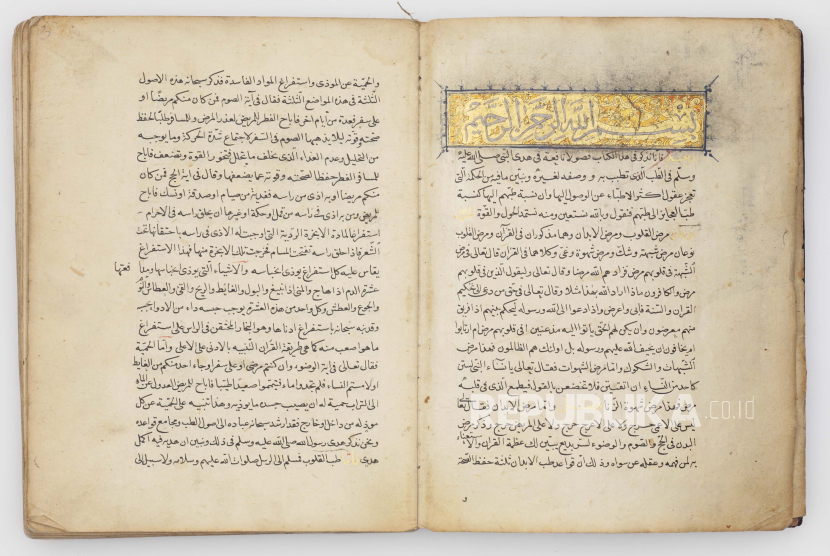 بسم الله الرحمن الرحيم
فانا نذكر فى هذا الكتاب فصولا نافعة فى هدى النبى صلى الله عليه
وسلم فى الطب الذى تطبب به و وصفه لغيره ونبين ما فيه من الحكمة التى
تعجز عقول اكثر الاطباء عن الوصول اليها وان نسبة طبهم اليها كنسبة
طب العجايز الى طبهم فنقول وبالله نستعين ومنه نستمد الحول والقوة
مرض القلوب ومرض الابدان وهما مذكوران فى القرآن ومرض القلوب
نوعان مرض شبهة وشك ومرض شهوة وغى وكلاهما فى القرآن قال تعالى فى مرض
الشبهة فى قلوبهم مرض فزادهم الله مرضا وقال تعالى وليقول الذين فى قلوبهم
مرض والكافرون ماذا اراد الله بهذا مثلا وقال تعالى فى حق من دعى الى تحكيم
القرآن والسنة فابى واعرض واذا دعوا الى الله ورسوله ليحكم بينهم اذا فريق
منهم معرضون وان يكن لهم الحق ياتوا اليه مذعنين افى قلوبهم مرض ام ارتابوا
ام يخافون ان يحيف الله عليهم ورسوله بل اولئك هم الظالمون فهذا مرض
الشبهات والشكوك واما مرض الشهوات فقال تعالى يا نساء النبى لستن
كاحد من النساء ان اتقيتن فلا تخضعن بالقول فيطمع الذى فى قلبه
مرض فهذا مرض شهوة الزنا واما مرض الابدان فقال تعالى
ليس على الاعمى حرج ولا على الاعرج حرج ولا على المريض حرج وذكر مرض
البدن فى الحج والصوم والوضوء لسر بديع يبين لك عظمة القرآن والاستغناء
به لمن فهمه وعقله عن سواه وذلك ان قواعد طب الابدان ثلثة حفظ الصحة
والحمية عن الموذى واستفراغ المواد الفاسدة فذكر سبحانه هذه الاصول
الثلثة فى هذه المواضع الثلثة فقال فى آية الصوم فمن كان منكم مريضا او
على سفر فعدة من ايام اخر فاباح الفطر للمريض لعذر المرض وللمسافر طلبا لحفظ
صحته وقوته ليلا يذهبها الصوم فى السفر لاجتماع شدة الحركة وما يوجبه
من التحليل وعدم الغذاء الذى يخلف ما يتحلل فتخور القوة وتضعف فاباح
للمسافر الفطر حفظا لصحته وقوته عما يضعفها وقال فى آية الحج فمن كان
منكم مريضا او به اذى من راسه ففدية من صيام او صدقة او نسك فاباح
للمريض ومن به اذى فى راسه من قمل وحكة او غيرهما ان يحلق راسه فى الاحرام
استفراغا لمادة الابخرة الردية التى اوجبت له الاذى فى راسه باحتقانها تحت
الشعر فاذا حلق راسه تفتحت المسام فخرجت تلك الابخرة منها فهذا الاستفراغ
يقاس عليه كل استفراغ يوذى انحباسه والاشياء التى يوذى انحباسها ومدافعتها
عشرة الدم اذا هاج والمنى اذا تبيغ والبول والغايط والريح والقى والعطاس والنوم
والجوع والعطش وكل واحد من هذه العشرة يوجب حبسه داء من الادواء بحسبه
وقد نبه سبحانه باستفراغ ادناها وهو البخار المحتقن فى الراس على استفراغ
ما هو اصعب منه كما هى طريقة القرآن التنبيه بالادنى على الاعلى واما الحمية
فقال تعالى فى آية الوضوء وان كنتم مرضى او على سفر او جاء احد منكم من الغايط
او لامستم النساء فلم تجدوا ماء فتيمموا صعيدا طيبا فاباح للمريض العدول عن الماء
الى التراب حمية له ان يصيب جسده ما يوذيه وهذا تنبيه على الحمية عن كل
موذ له من داخل او خارج فقد ارشد سبحانه عباده الى اصول الطب ومجامع قواعده
ونحن نذكر هدى رسول الله صلى الله عليه وسلم فى ذلك ونبين ان هديه فيه اكمل
هدى طب القلوب فمسلم الى الرسل صلوات الله عليهم وسلامه ولا سبيل الى
REPUBLIKA.co.id